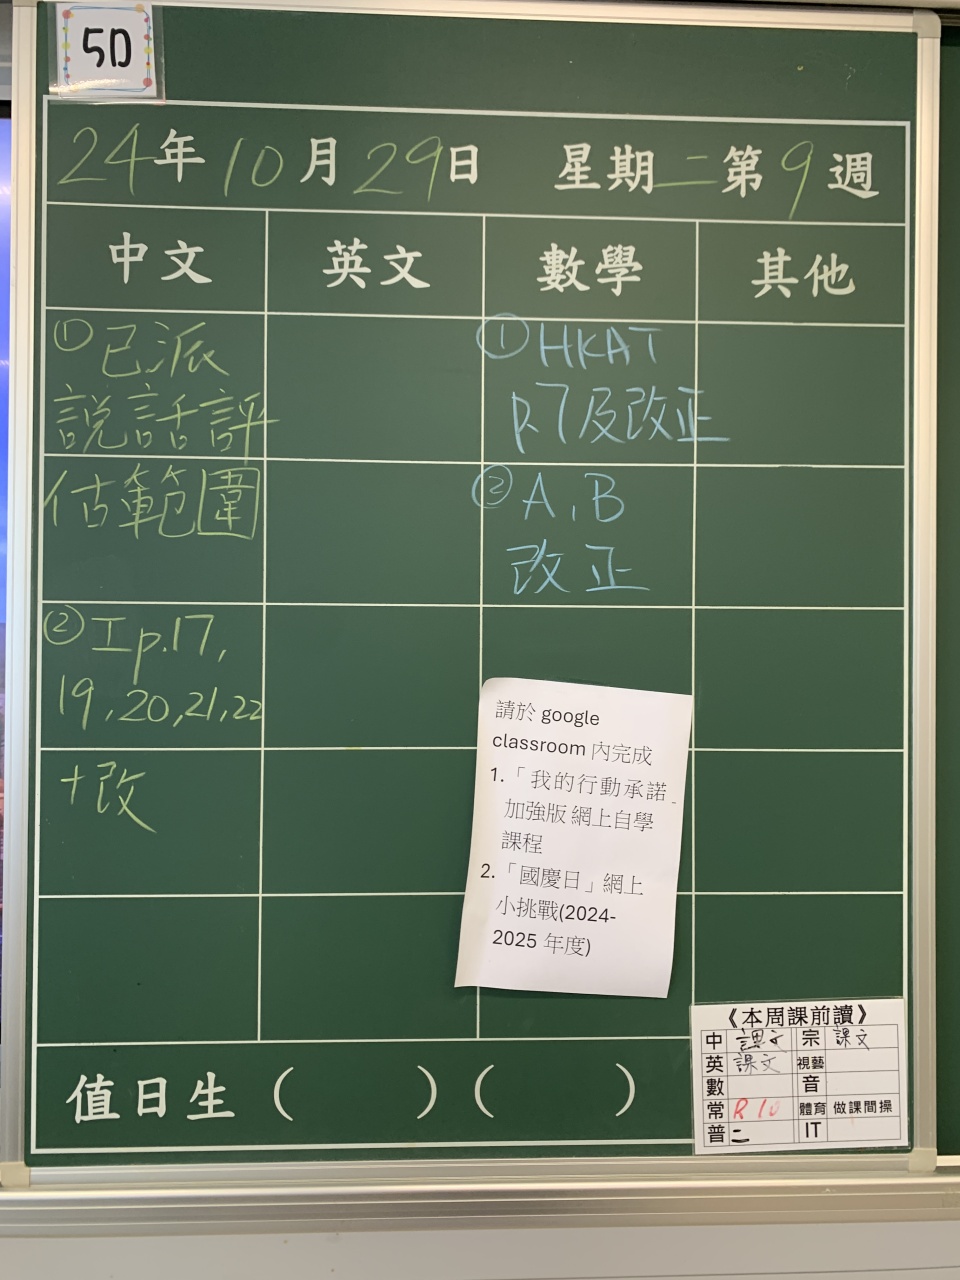 5D
24年10月29日 星期二第9週
中文 英文 數學 其他
①已派
説話評
估範圍
②工p.17,
19,20,21,22
+改
①HKAT
p.7及改正
②A,B
改正
請於 google
classroom 內完成
1.「我的行動承諾」
加強版 網上自學
課程
2.「國慶日」網上
小挑戰(2024-
2025 年度)
值日生( )( )
《本周課前讀》
中 課文 宗 課文
英 課文 視藝
數 音
常 R10 體育 做課間操
普 二 IT